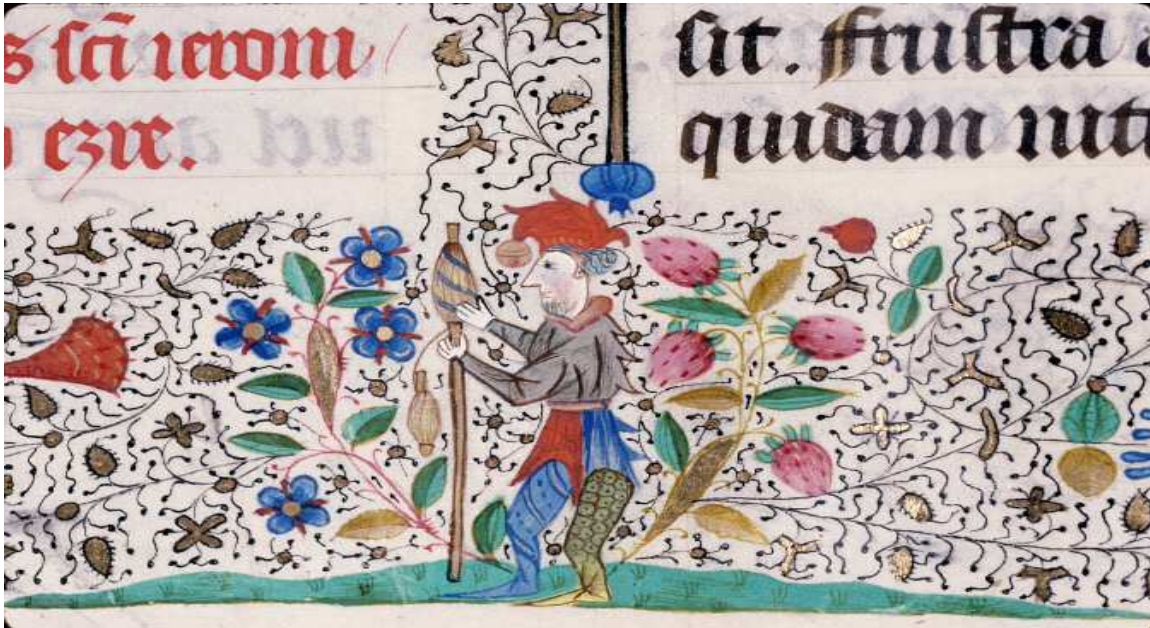 s ſcī ieroni
ezre.
ſit. ffruſtra a
quidam niti